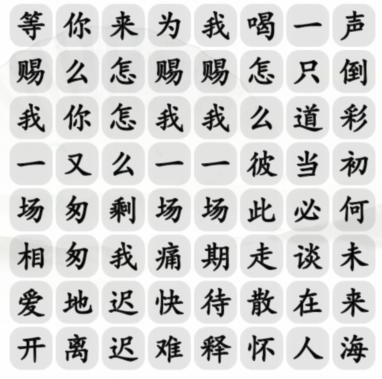 等你来为我喝一声
赐么怎赐赐怎只倒
我你怎我我么道彩
一又么一一彼当初
场匆剩场场此必何
相匆我痛期走谈未
爱地迟快待散在来
开离迟难释怀人海